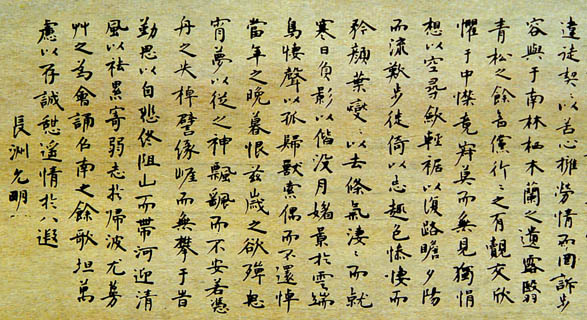 違徒契〻以苦心擁勞情而罔訴步
容與于南林栖木蘭之遺露翳
青松之餘陰儻行〻之有覿交欣
懼于中襟竟寂寞而無見獨悁
想以空尋歛輕裾以復路瞻夕陽
而流歎步徙倚以忘趣色慘悽而
矜顏葉燮〻以去條氣淒〻而就
寒日負影以偕没月媚景於雲端
鳥悽聲以孤歸獸索偶而不還悼
當年之晚暮恨茲歲之欲殫思
宵夢以從之神飄颻而不安若憑
舟之失棹譬緣崖而無攀于旹
勤思以自悲終阻山而帶河迎清
風以祛累寄弱志於歸波尤蔓
艸之為會誦召南之餘歌坦萬
慮以存誠憩遥情於八遐
長洲允明